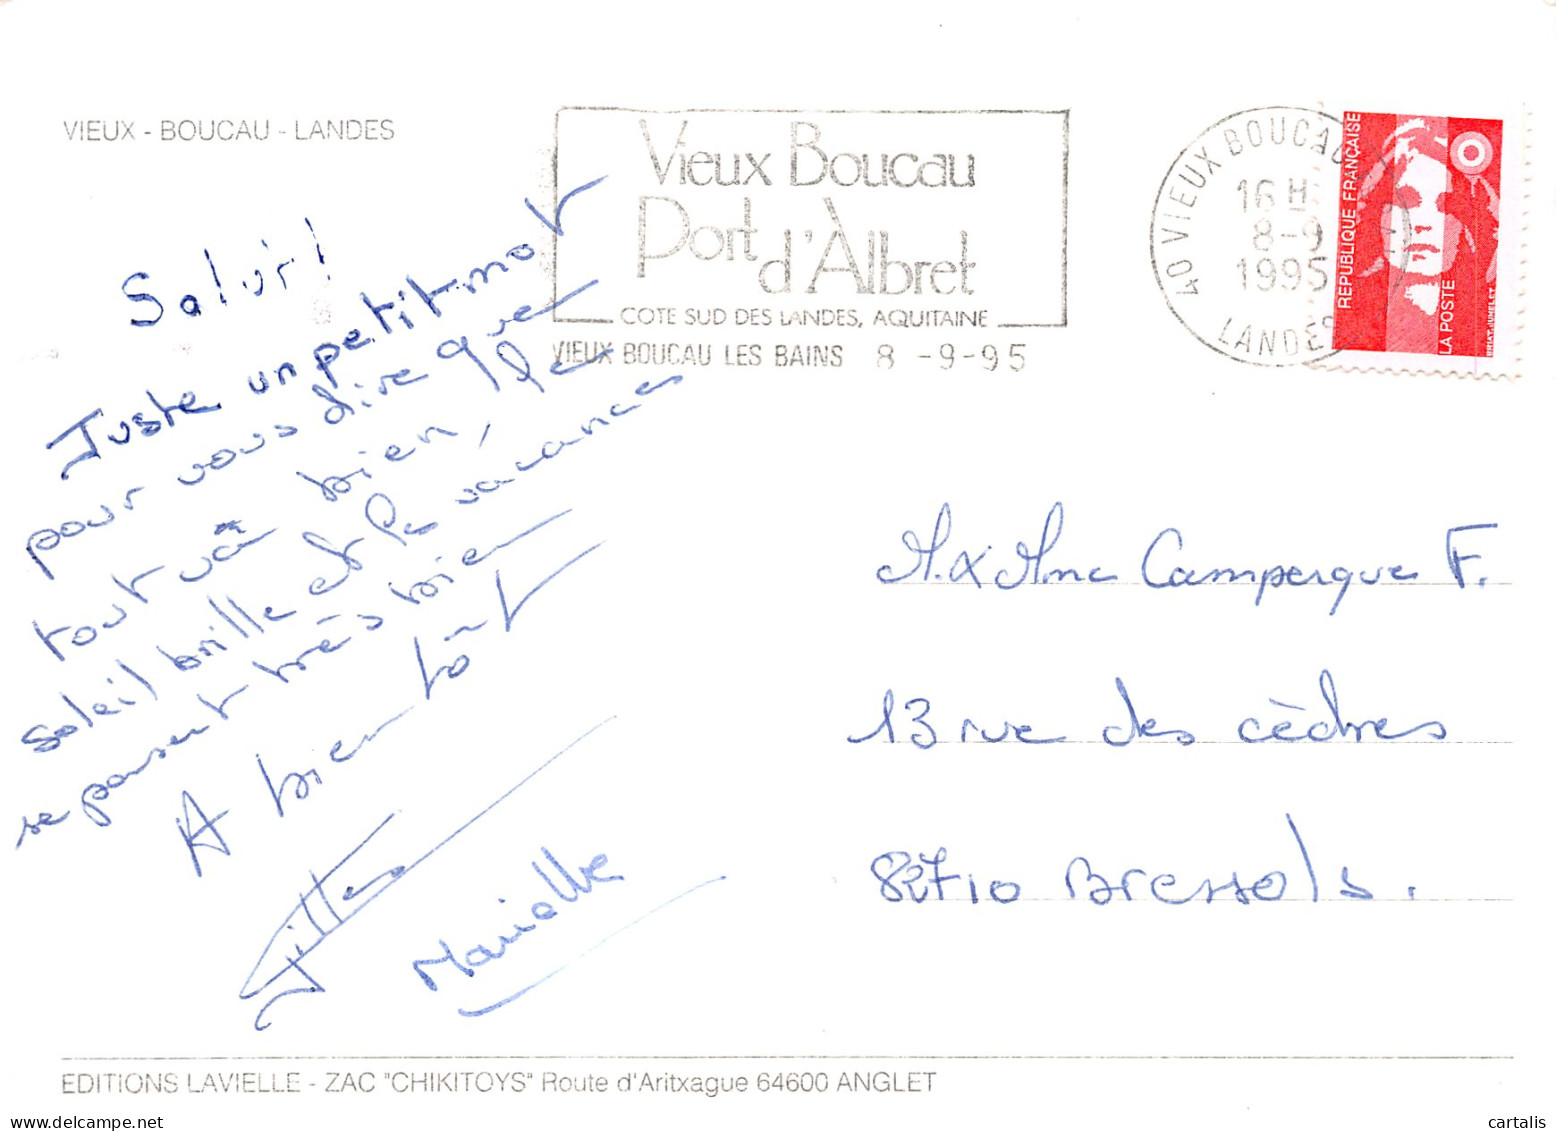 VIEUX - BOUCAU - LANDES
Vieux Boucau
Port d'Albret
COTE SUD DES LANDES, AQUITAINE
VIEUX BOUCAU LES BAINS 8 -9-95
40 VIEUX BOUCAU
16 H
8-9
1995
LANDES
REPUBLIQUE FRANÇAISE
LA POSTE
BRIAT-JUMELET
Salut !
Juste un petit mot
pour vous dire que
tout va bien, le
soleil brille et les vacances
se passent très bien
A bientôt
Marielle
M. & Mme Campergue F.
13 rue des cèdres
82710 Bressols.
EDITIONS LAVIELLE - ZAC "CHIKITOYS" Route d'Aritxague 64600 ANGLET
© cartalis